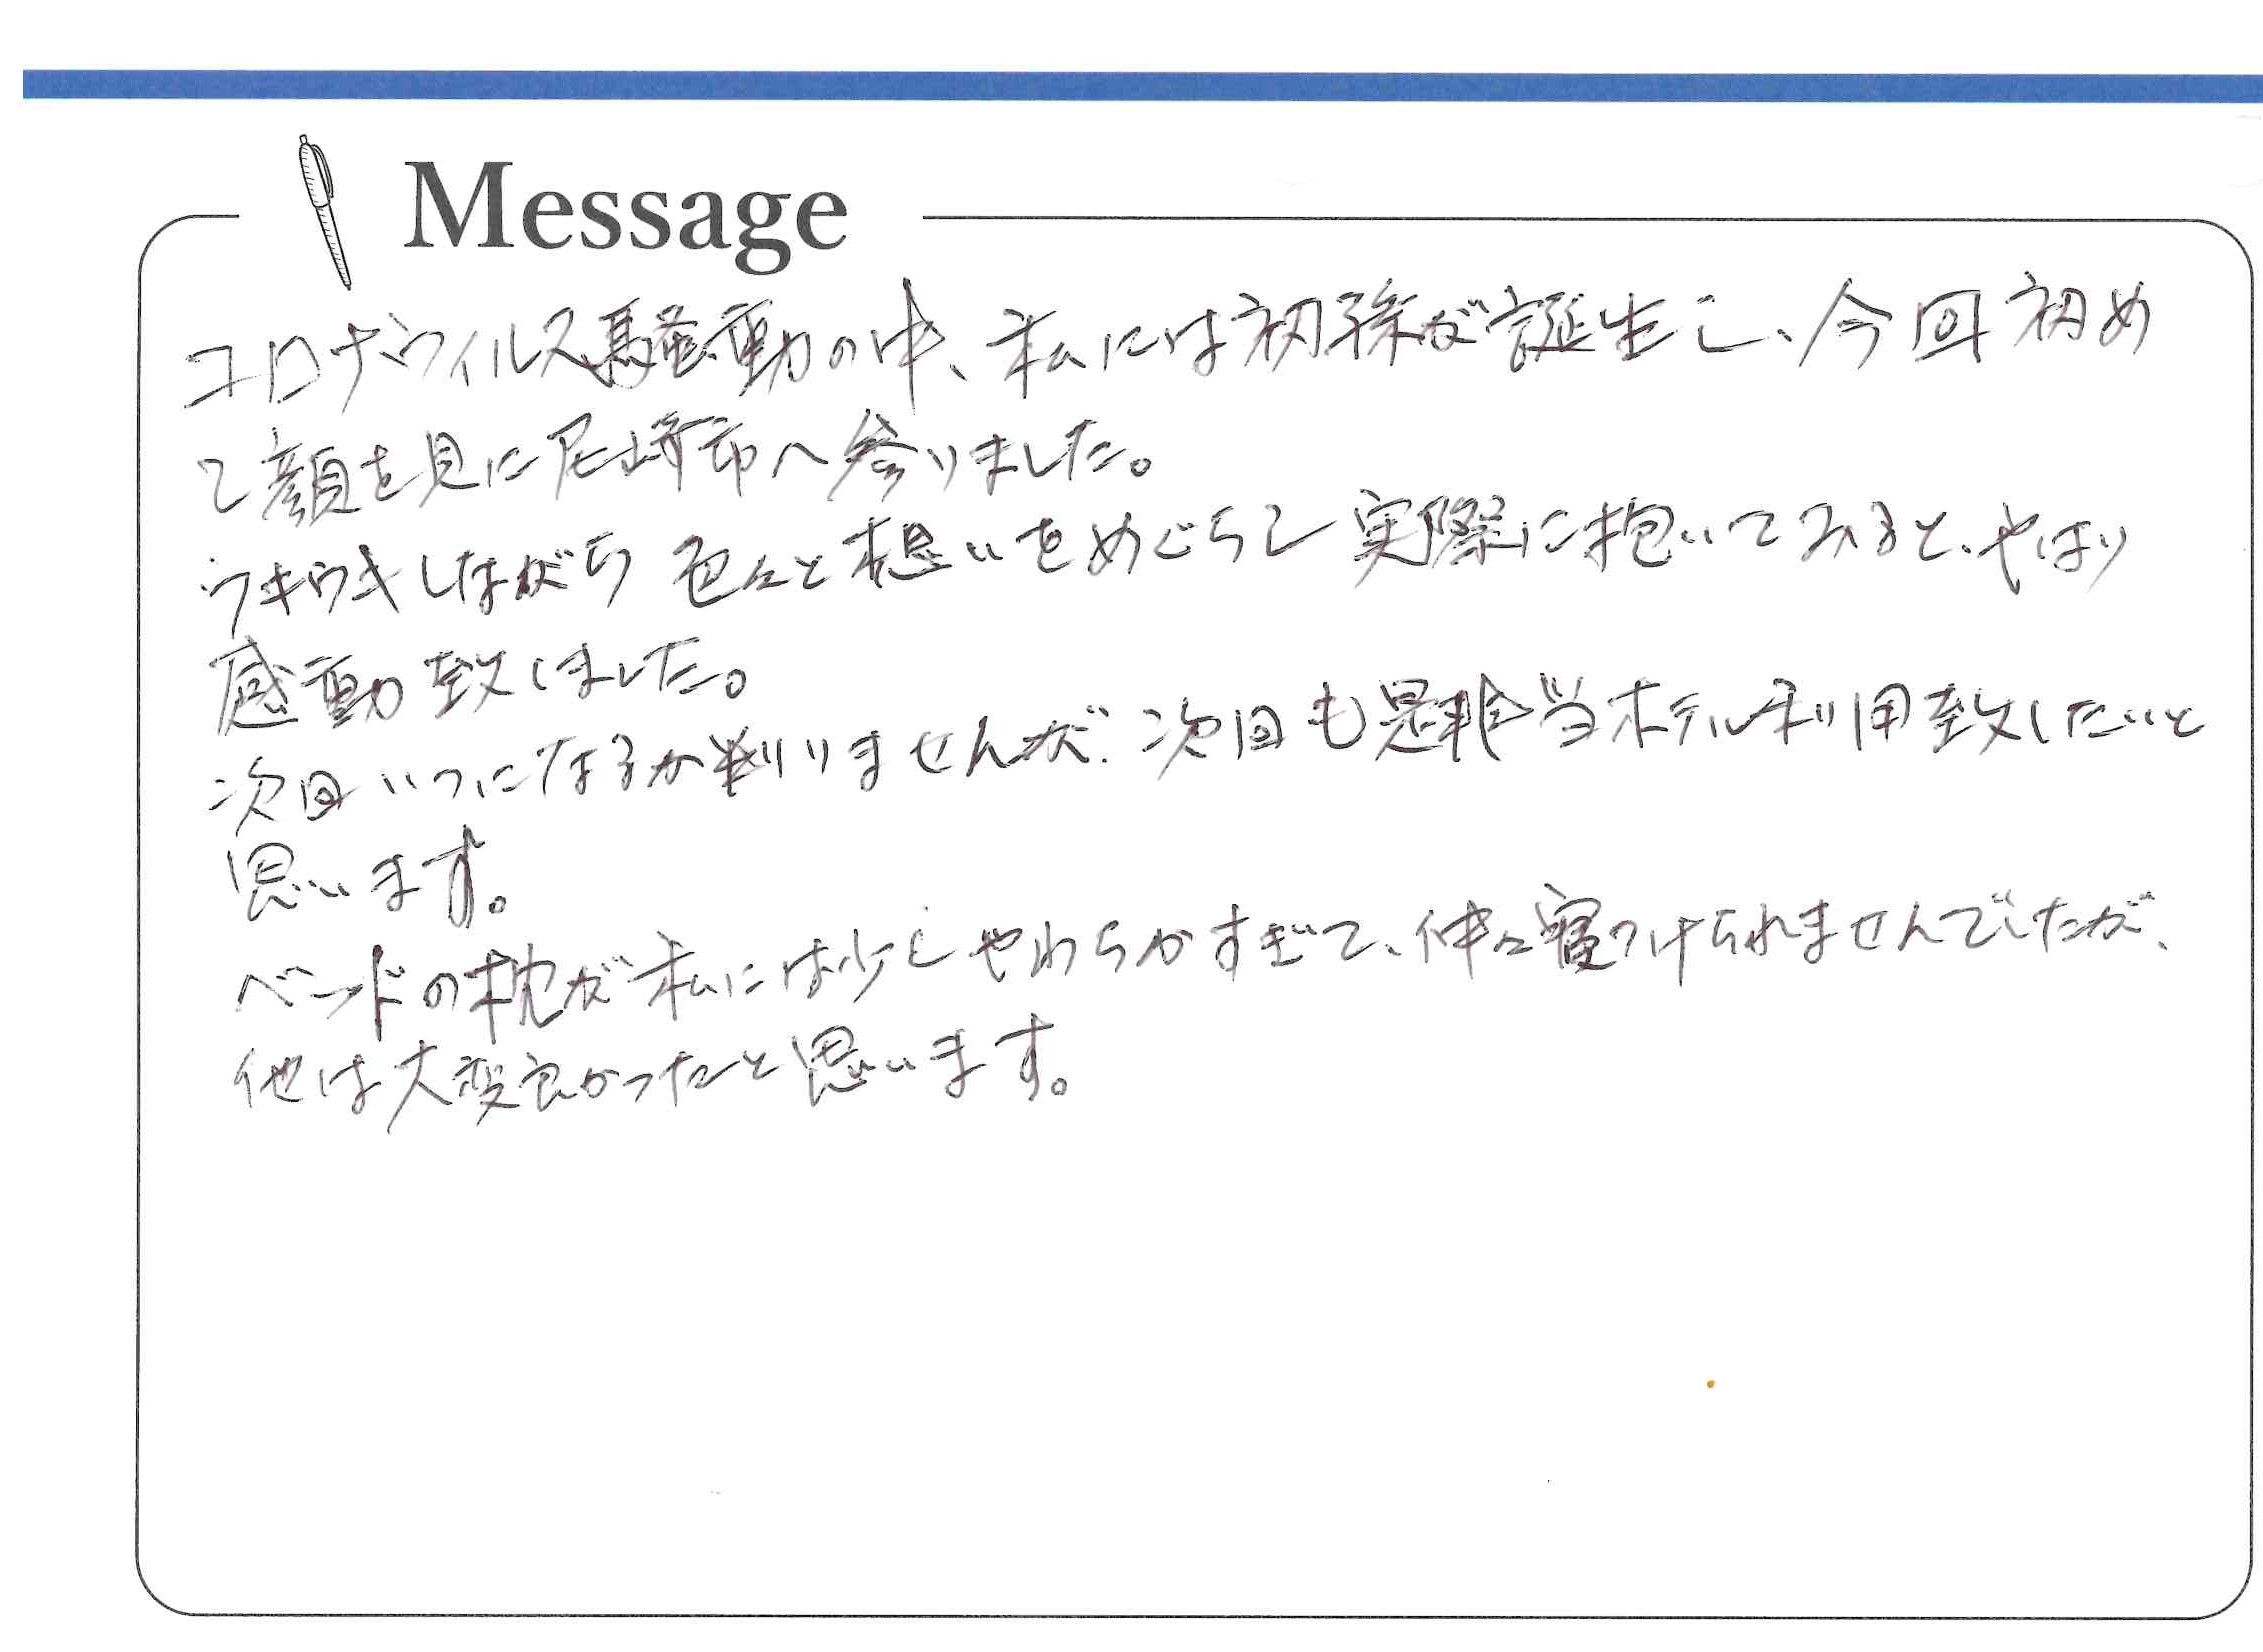 Message
コロナウィルス騒動の中、私には初孫が誕生し、今回初め
て顔を見に尼崎市へ参りました。
ウキウキしながら色々と想いをめぐらし実際に抱いてみると、やはり
感動致しました。
次回いつになるか判りませんが、次回も是非当ホテル利用致したいと
思います。
ベッドの枕が私には少しやわらかすぎて、仲々寝つけられませんでしたが、
他は大変良かったと思います。